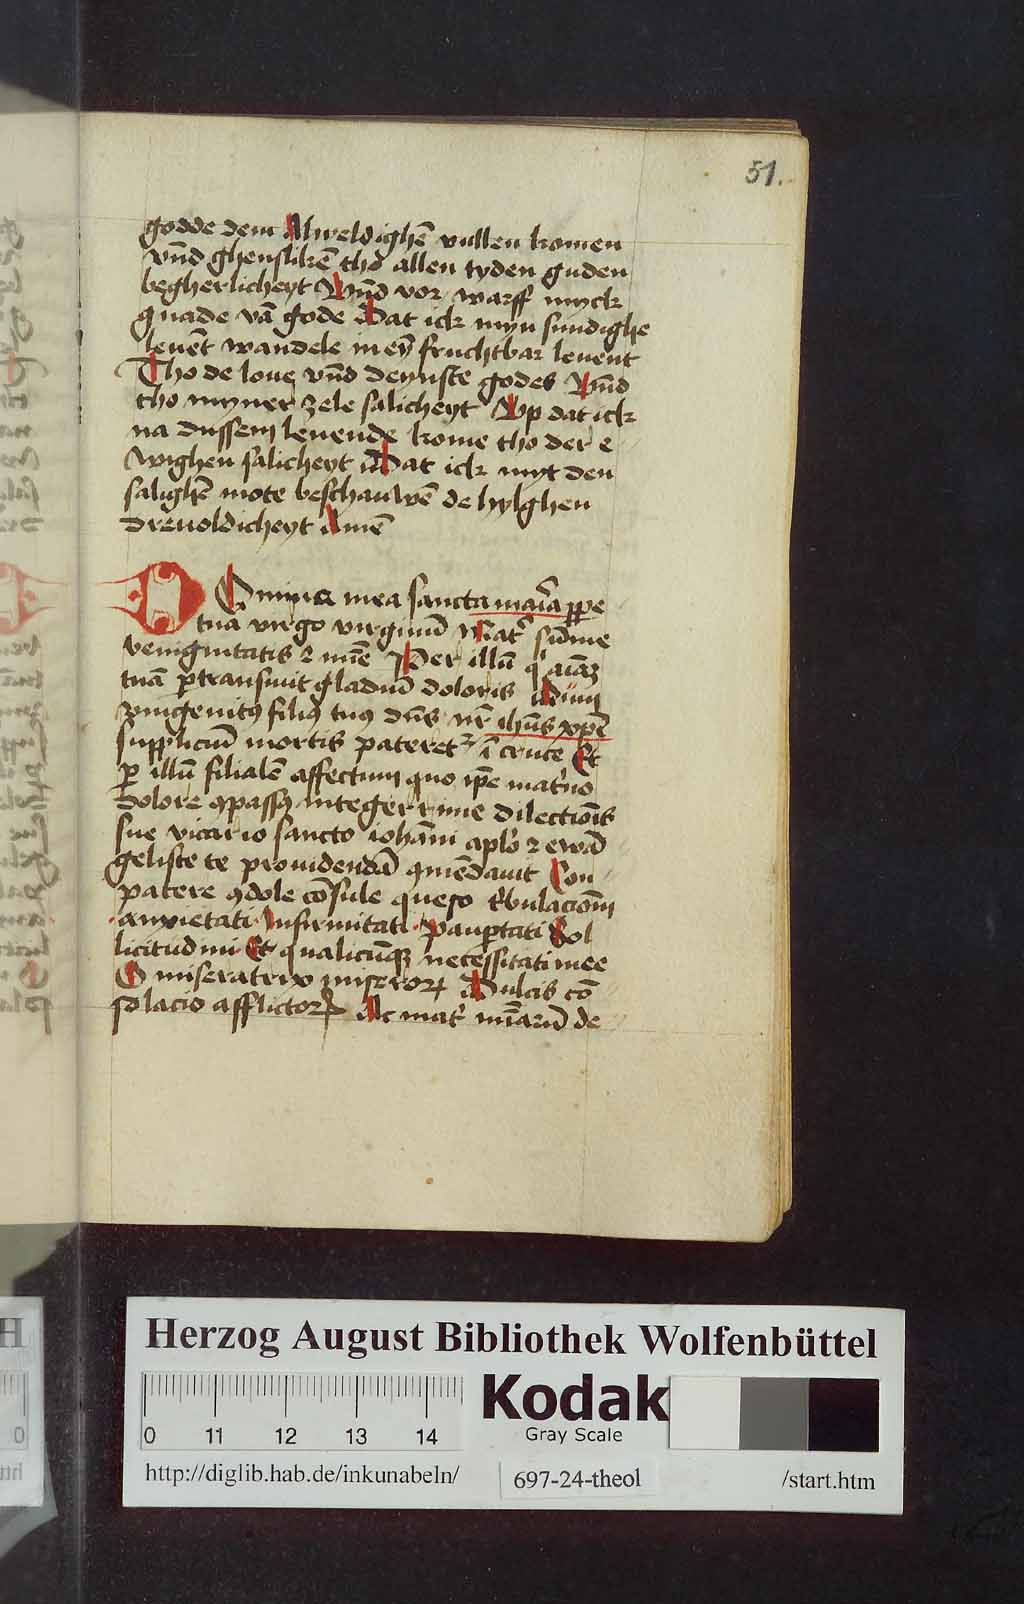 51.
godde dem Alweldighē vullen komen
vn̄d ghensliken tho allen tyden guden
begherlicheyt Vn̄d vor warff myck
gnade vā gode Dat ick myn sundighe
leuēt wandele in eȳ fruchtbar leuent
Tho de loue vn̄d deynste godes Vn̄d
tho myner zele salicheyt Vp dat ick
na dussem leuende kome tho der e
wighen salicheyt Dat ick myt den
salighē mote beschauwē de hylghen
dreuoldicheyt Amē
O Domina mea sancta maīa ꝑpe
tua virgo virginū Mat̓ sūme
benignitatis ⁊ mīe Per illū q̄ aīaꝫ
tuā ꝑtransiuit gladiū doloris dum
vnigenitꝰ filiꝰ tuꝰ dn̄s nr̄ ihūs xp̄e
suppliciū mortis pateret᷑ ī cruce Et
ꝑ illū filialē affectum quo ip̄e mat̓no
dolore ꝯpassꝰ integerrime dilectiōis
sue vicario sancto iohāni aplo ⁊ ewā
geliste te prouidendā ꝯmēdauit Con
patere ꝯdole cōsule queso t̓bulaciom
anxietati Infirmitati paup̱tati Sol
licitudini Et qualicūqꝫ necessitati mee
O miseratrix miseroꝝ Dulcis cō
solacio afflictoꝝ Ac mat̓ mīarū de
Herzog August Bibliothek Wolfenbüttel
0 11 12 13 14
Kodak
Gray Scale
http://diglib.hab.de/inkunabeln/
697-24-theol
/start.htm